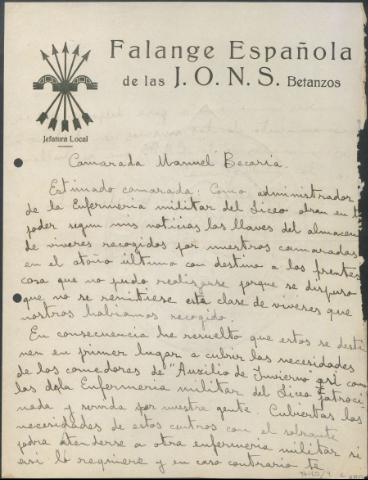 Falange Española
de las J.O.N.S. Betanzos
Jefatura Local
Camarada Manuel Becaría.
Estimado camarada: Como administrador
de la Enfermeria militar del Liceo obran en tu
poder segun mis noticias las llaves del almacen
de viveres recogidos por nuestros camaradas
en el otoño último con destino a los frentes
cosa que no pudo realizarse porque se dispuso
que no se remitiese esta clase de viveres que
nosotros habiamos recogido.
En consecuencia he resuelto que estos se desti
nen en primer lugar a cubrir las necesidades
de los comedores de "Auxilio de Invierno" así como
las de la Enfermeria militar del Liceo patroci
nada y servida por nuestra gente. Cubiertas las
necesidades de estos centros con el sobrante
podra atenderse a otra enfermeria militar si
asi lo requiere y en caso contrario te